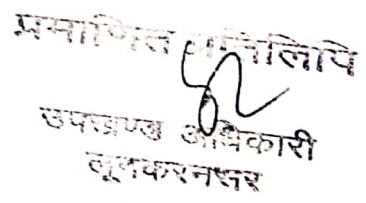 प्रमाणित प्रतिलिपि
उपखण्ड अधिकारी
लूनकरनसर